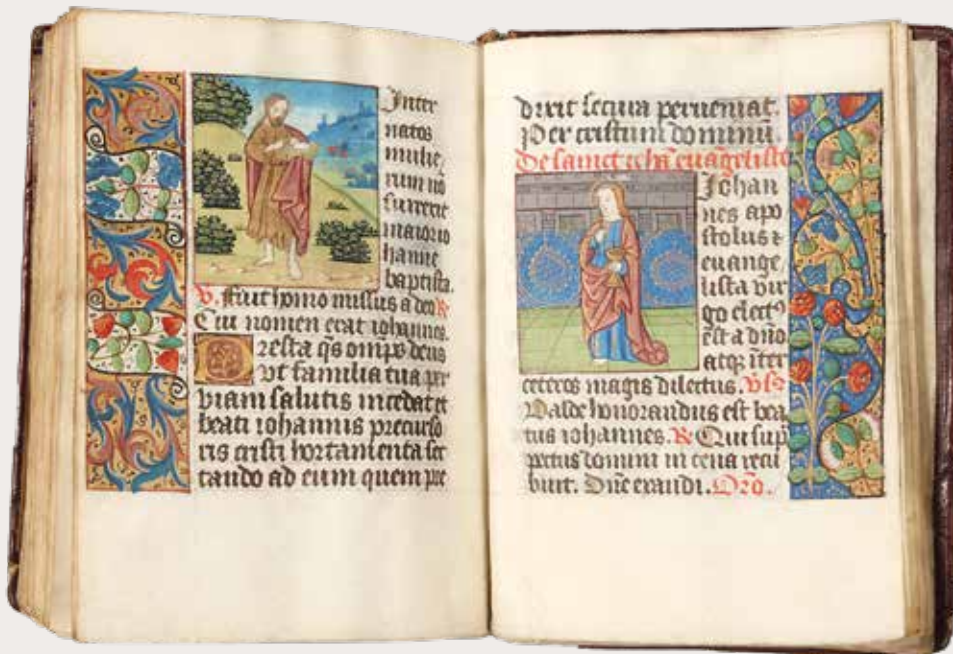 Inter
natos
mulie
rum no
surrexit
maiorio
hanne
baptista.
V. Fuit homo missus a deo R
Cui nomen erat iohannes.
Presta qs omps deus
vt familia tua per
viam salutis incedat et
beati iohannis precurso
ris cristi hortamenta sec
tando ad eum quem pre
dixit secura perueniat.
Per cristum dominu.
De sanct iohane euagelista
Johan
nes apo
stolus z
euange
lista vir
go elect9
est a dno
atqz iter
ceteros magis dilectus. Vs9
Valde honorandus est bea
tus iohannes. R Qui sup
pectus domini in cena recu
buit. Dne exaudi. Oro.